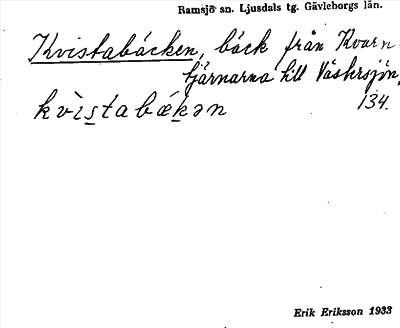 Ramsjö sn. Ljusdals tg. Gävleborgs län.
Kvistabäcken, bäck från Kvarn
tjärnarna till Väskrsjön,
134.
kvìstabǽkən
Erik Eriksson 1933